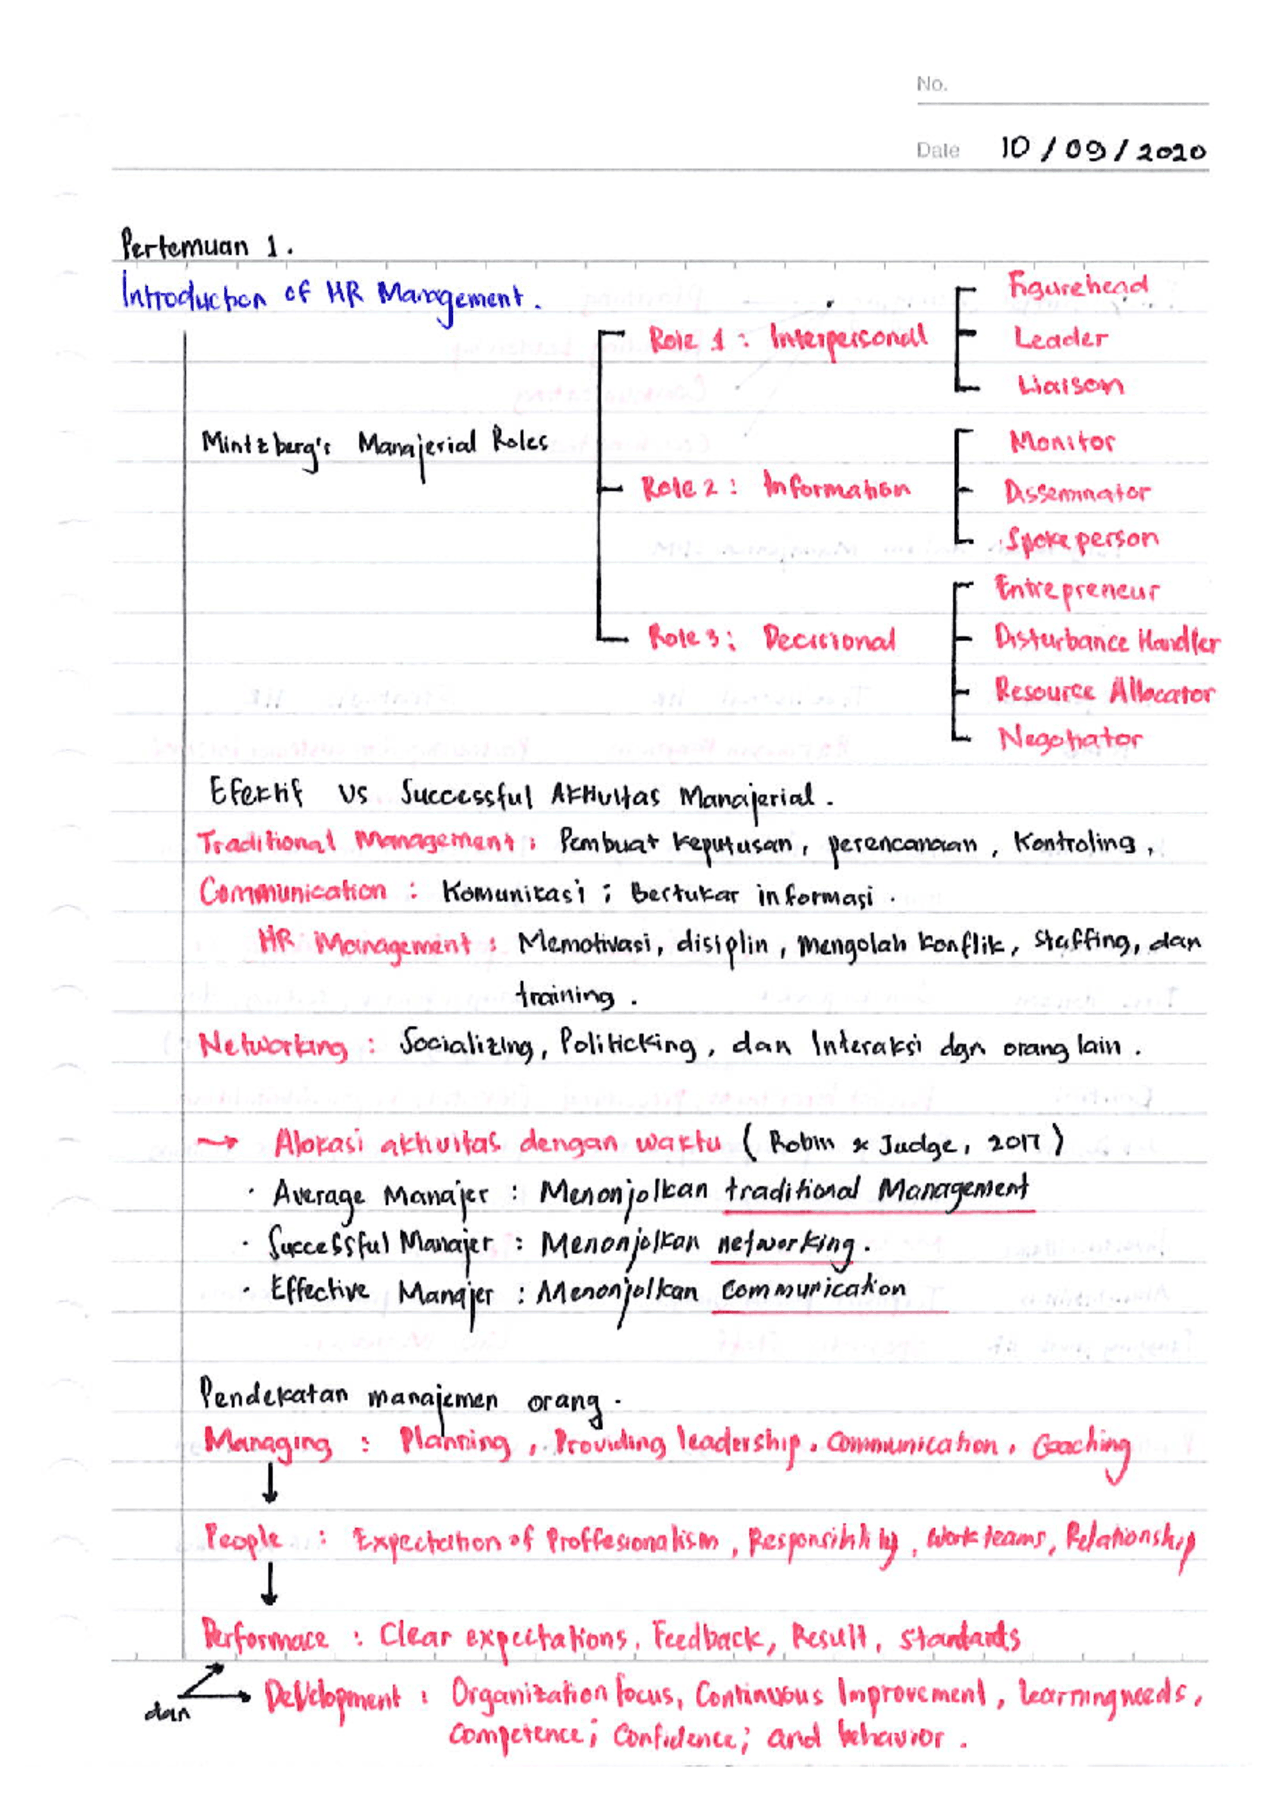 No.
Date 10/09/2020
Pertemuan 1.
Introduction of HR Management.
Mintzberg's Manajerial Roles
Role 1 : Interpersonal
Figurehead
Leader
Liaison
Role 2 : Information
Monitor
Disseminator
Spokeperson
Role 3 : Decisional
Entrepreneur
Disturbance Handler
Resource Allocator
Negotiator
Efektif vs Successful Aktivitas Manajerial.
Traditional Management : Pembuat keputusan, perencanaan, Kontroling,
Communication : Komunikasi ; Bertukar informasi.
HR Management : Memotivasi, disiplin, mengolah konflik, staffing, dan
training.
Networking : Socializing, Politicking, dan Interaksi dgn orang lain.
→ Alokasi aktivitas dengan waktu (Robin & Judge, 2017)
· Average Manajer : Menonjolkan traditional Management
· Successful Manajer : Menonjolkan networking.
· Effective Manajer : Menonjolkan communication
Pendekatan manajemen orang.
Managing : Planning, Providing leadership, Communication, Coaching
↓
People : Expectation of Proffesionalism, Responsibility, Work teams, Relationship
↓
Performace : Clear expectations, Feedback, Result, standards
dan → Development : Organization focus, Continuous Improvement, learning needs,
Competence; Confidence; and behavior.